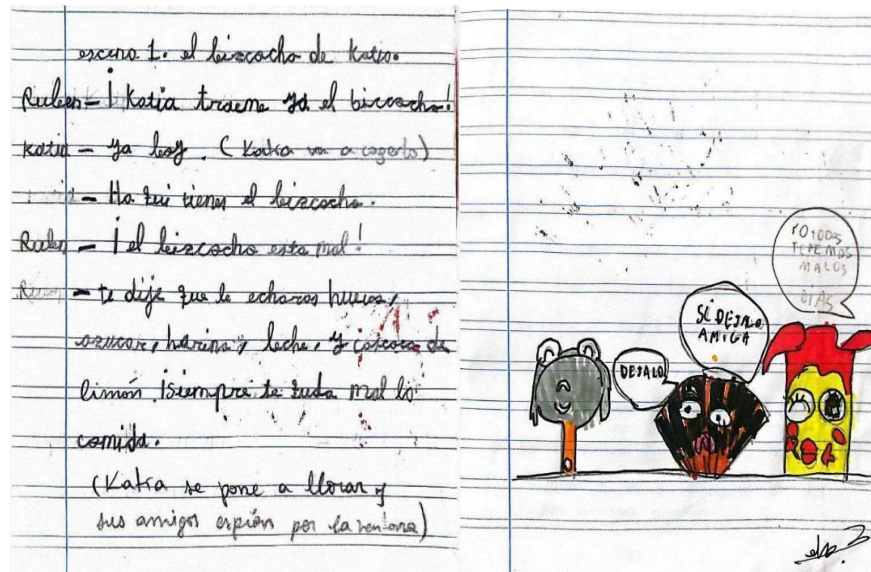 escena 1. el bizcocho de Katia.
Ruben - ¡Katia traeme ya el bizcocho!
Katia - ya boy. (Katia va a cogerlo)
- Ha qui tienes el bizcocho.
Ruben - ¡el bizcocho esta mal!
- te dije que le echaras huevos,
azucar, harina, leche, y cascara de
limón. ¡Siempre te queda mal la
comida.
(Katia se pone a llorar y
sus amigos espian por la ventana)
DEJALO
SI DEJALO
AMIGA
TODOS
TENEMOS
MALOS
DIAS